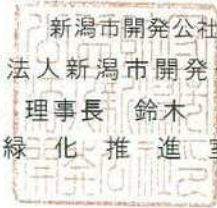 新潟市開発公社
法人新潟市開発
理事長 鈴木
緑化推進